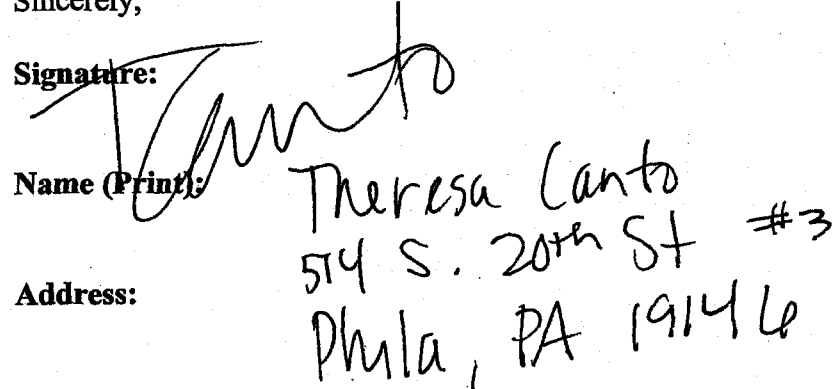 Sincerely,
Signature: TCanto
Name (Print): Theresa Canto
514 S. 20th St #3
Address:
Phila, PA 19146